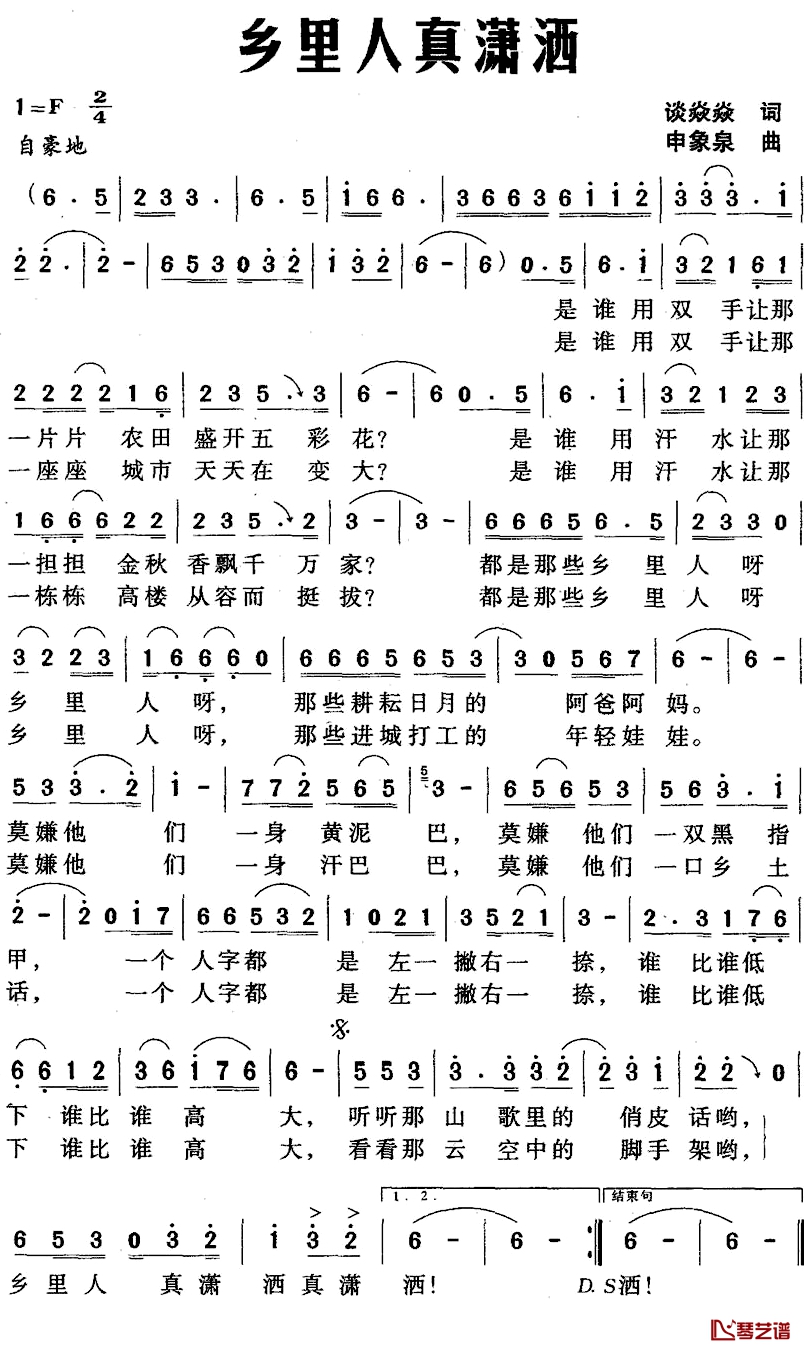 乡里人真潇洒
1=F 2/4
谈焱焱 词
自豪地
申象泉 曲
(6 . 5 | 2 3 3 . | 6 . 5 | 1 6 6 . | 3 6 6 3 6 1 1 2 | 3 3 3 . 1 |
2 2 . | 2 - | 6 5 3 0 3 2 | 1 3 2 | 6 - | 6 ) 0 . 5 | 6 . 1 | 3 2 1 6 1 |
是谁用双 手让那
是谁用双 手让那
2 2 2 2 1 6 | 2 3 5 . 3 | 6 - | 6 0 . 5 | 6 . 1 | 3 2 1 2 3 |
一片片 农田 盛开五 彩花? 是谁 用汗 水让那
一座座 城市 天天在 变大? 是谁 用汗 水让那
1 6 6 6 2 2 | 2 3 5 . 2 | 3 - | 3 - | 6 6 6 5 6 . 5 | 2 3 3 0 |
一担担 金秋 香飘千 万家? 都是那些乡 里人呀
一栋栋 高楼 从容而 挺拔? 都是那些乡 里人呀
3 2 2 3 | 1 6 6 6 0 | 6 6 6 5 6 5 3 | 3 0 5 6 7 | 6 - | 6 - |
乡里 人呀, 那些耕耘日月的 阿爸阿妈。
乡里 人呀, 那些进城打工的 年轻娃娃。
5 3 3 . 2 | 1 - | 7 7 2 5 6 5 | 5 3 - | 6 5 6 5 3 | 5 6 3 . 1 |
莫嫌他 们 一身 黄泥 巴, 莫嫌 他们 一双黑 指
莫嫌他 们 一身 汗巴 巴, 莫嫌 他们 一口乡 土
2 - | 2 0 1 7 | 6 6 5 3 2 | 1 0 2 1 | 3 5 2 1 | 3 - | 2 . 3 1 7 6 |
甲, 一个 人字都 是 左一 撇右一 捺, 谁 比谁低
话, 一个 人字都 是 左一 撇右一 捺, 谁 比谁低
6 6 1 2 | 3 6 1 7 6 | 6 - | 5 5 3 | 3 . 3 3 2 | 2 3 1 | 2 2 0 |
下 谁比 谁高 大, 听听那 山 歌里的 俏皮 话哟,
下 谁比 谁高 大, 看看那 云 空中的 脚手 架哟,
1. 2. 结束句
6 5 3 0 3 2 | 1 3 2 | 6 - | 6 - :| 6 - | 6 - |
乡里人 真潇 洒真潇 洒! D.S洒!
琴艺谱